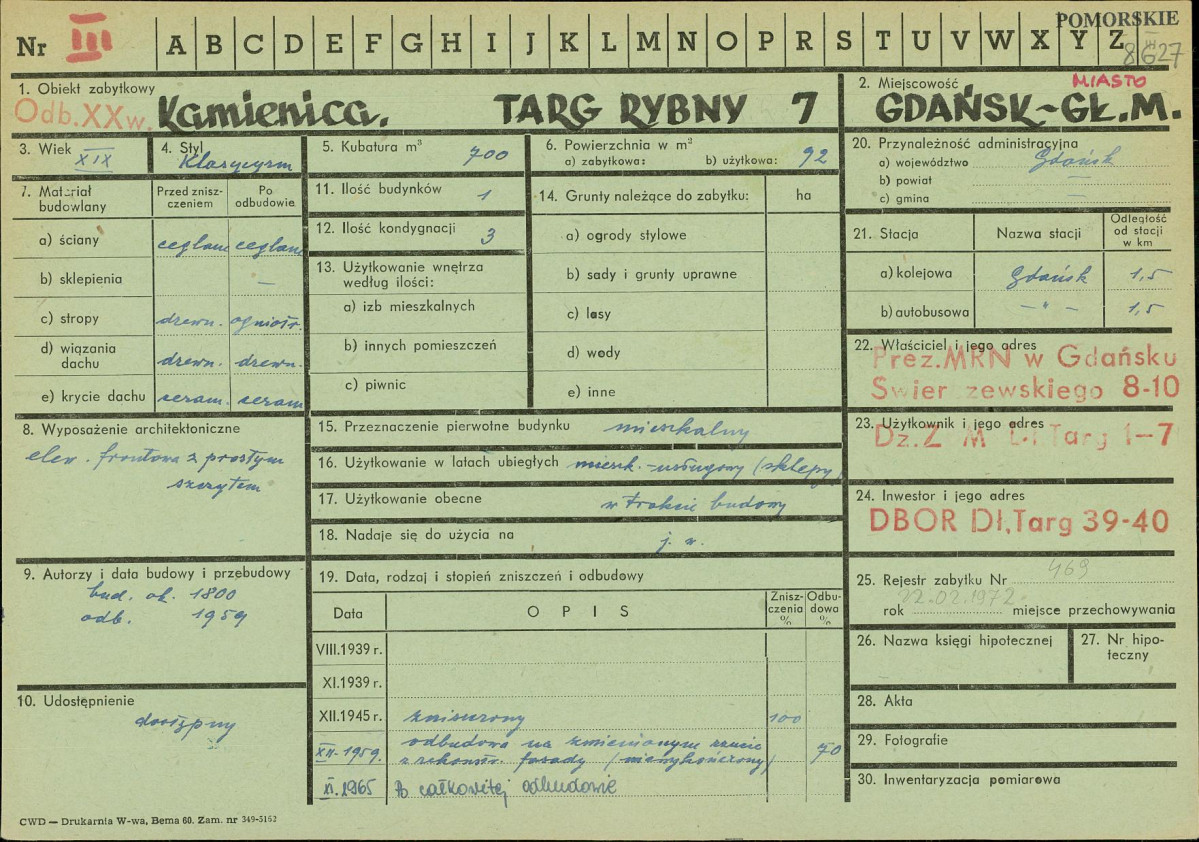 POMORSKIE
Nr III A B C D E F G H I J K L M N O P R S T U V W X Y Z
8627
1. Obiekt zabytkowy
Odb. XX w. Kamienica. TARG RYBNY 7
2. Miejscowość MIASTO
GDAŃSK-GŁ.M.
3. Wiek XIX
4. Styl Klasycyzm
5. Kubatura m³ 700
6. Powierzchnia w m²
a) zabytkowa: b) użytkowa: 92
7. Materiał budowlany
Przed zniszczeniem
Po odbudowie
a) ściany ceglane ceglane
b) sklepienia —
c) stropy drewn. ogniotr.
d) wiązania dachu drewn. drewn.
e) krycie dachu ceram. ceram
8. Wyposażenie architektoniczne
elew. frontowa z prostym
szczytem
9. Autorzy i data budowy i przebudowy
bud. ok. 1800
odb. 1959
10. Udostępnienie
dostępny
11. Ilość budynków 1
12. Ilość kondygnacji 3
13. Użytkowanie wnętrza
według ilości:
a) izb mieszkalnych
b) innych pomieszczeń
c) piwnic
14. Grunty należące do zabytku: ha
a) ogrody stylowe
b) sady i grunty uprawne
c) lasy
d) wody
e) inne
15. Przeznaczenie pierwotne budynku mieszkalny
16. Użytkowanie w latach ubiegłych mieszk.-usługowy (sklepy)
17. Użytkowanie obecne w trakcie budowy
18. Nadaje się do użycia na j. w.
19. Data, rodzaj i stopień zniszczeń i odbudowy
Data OPIS Zniszczenia % Odbudowa %
VIII.1939 r.
XI.1939 r.
XII.1945 r. zniszczony 100
XII-1959. odbudowa na zmienionym rzucie
z rekonstr. fasady (niewykończony) 70
XI.1965 Po całkowitej odbudowie
20. Przynależność administracyjna
a) województwo Gdańsk
b) powiat —
c) gmina —
21. Stacja Nazwa stacji Odległość od stacji w km
a) kolejowa Gdańsk 1,5
b) autobusowa — " — 1,5
22. Właściciel i jego adres
Prez. MRN w Gdańsku
Swier zewskiego 8-10
23. Użytkownik i jego adres
Dz.Z M L-I Targ 1-7
24. Inwestor i jego adres
DBOR Dł,Targ 39-40
25. Rejestr zabytku Nr 469
rok 22.02.1972. miejsce przechowywania
26. Nazwa księgi hipotecznej
27. Nr hipoteczny
28. Akta
29. Fotografie
30. Inwentaryzacja pomiarowa
CWD — Drukarnia W-wa, Bema 60. Zam. nr 349-5162